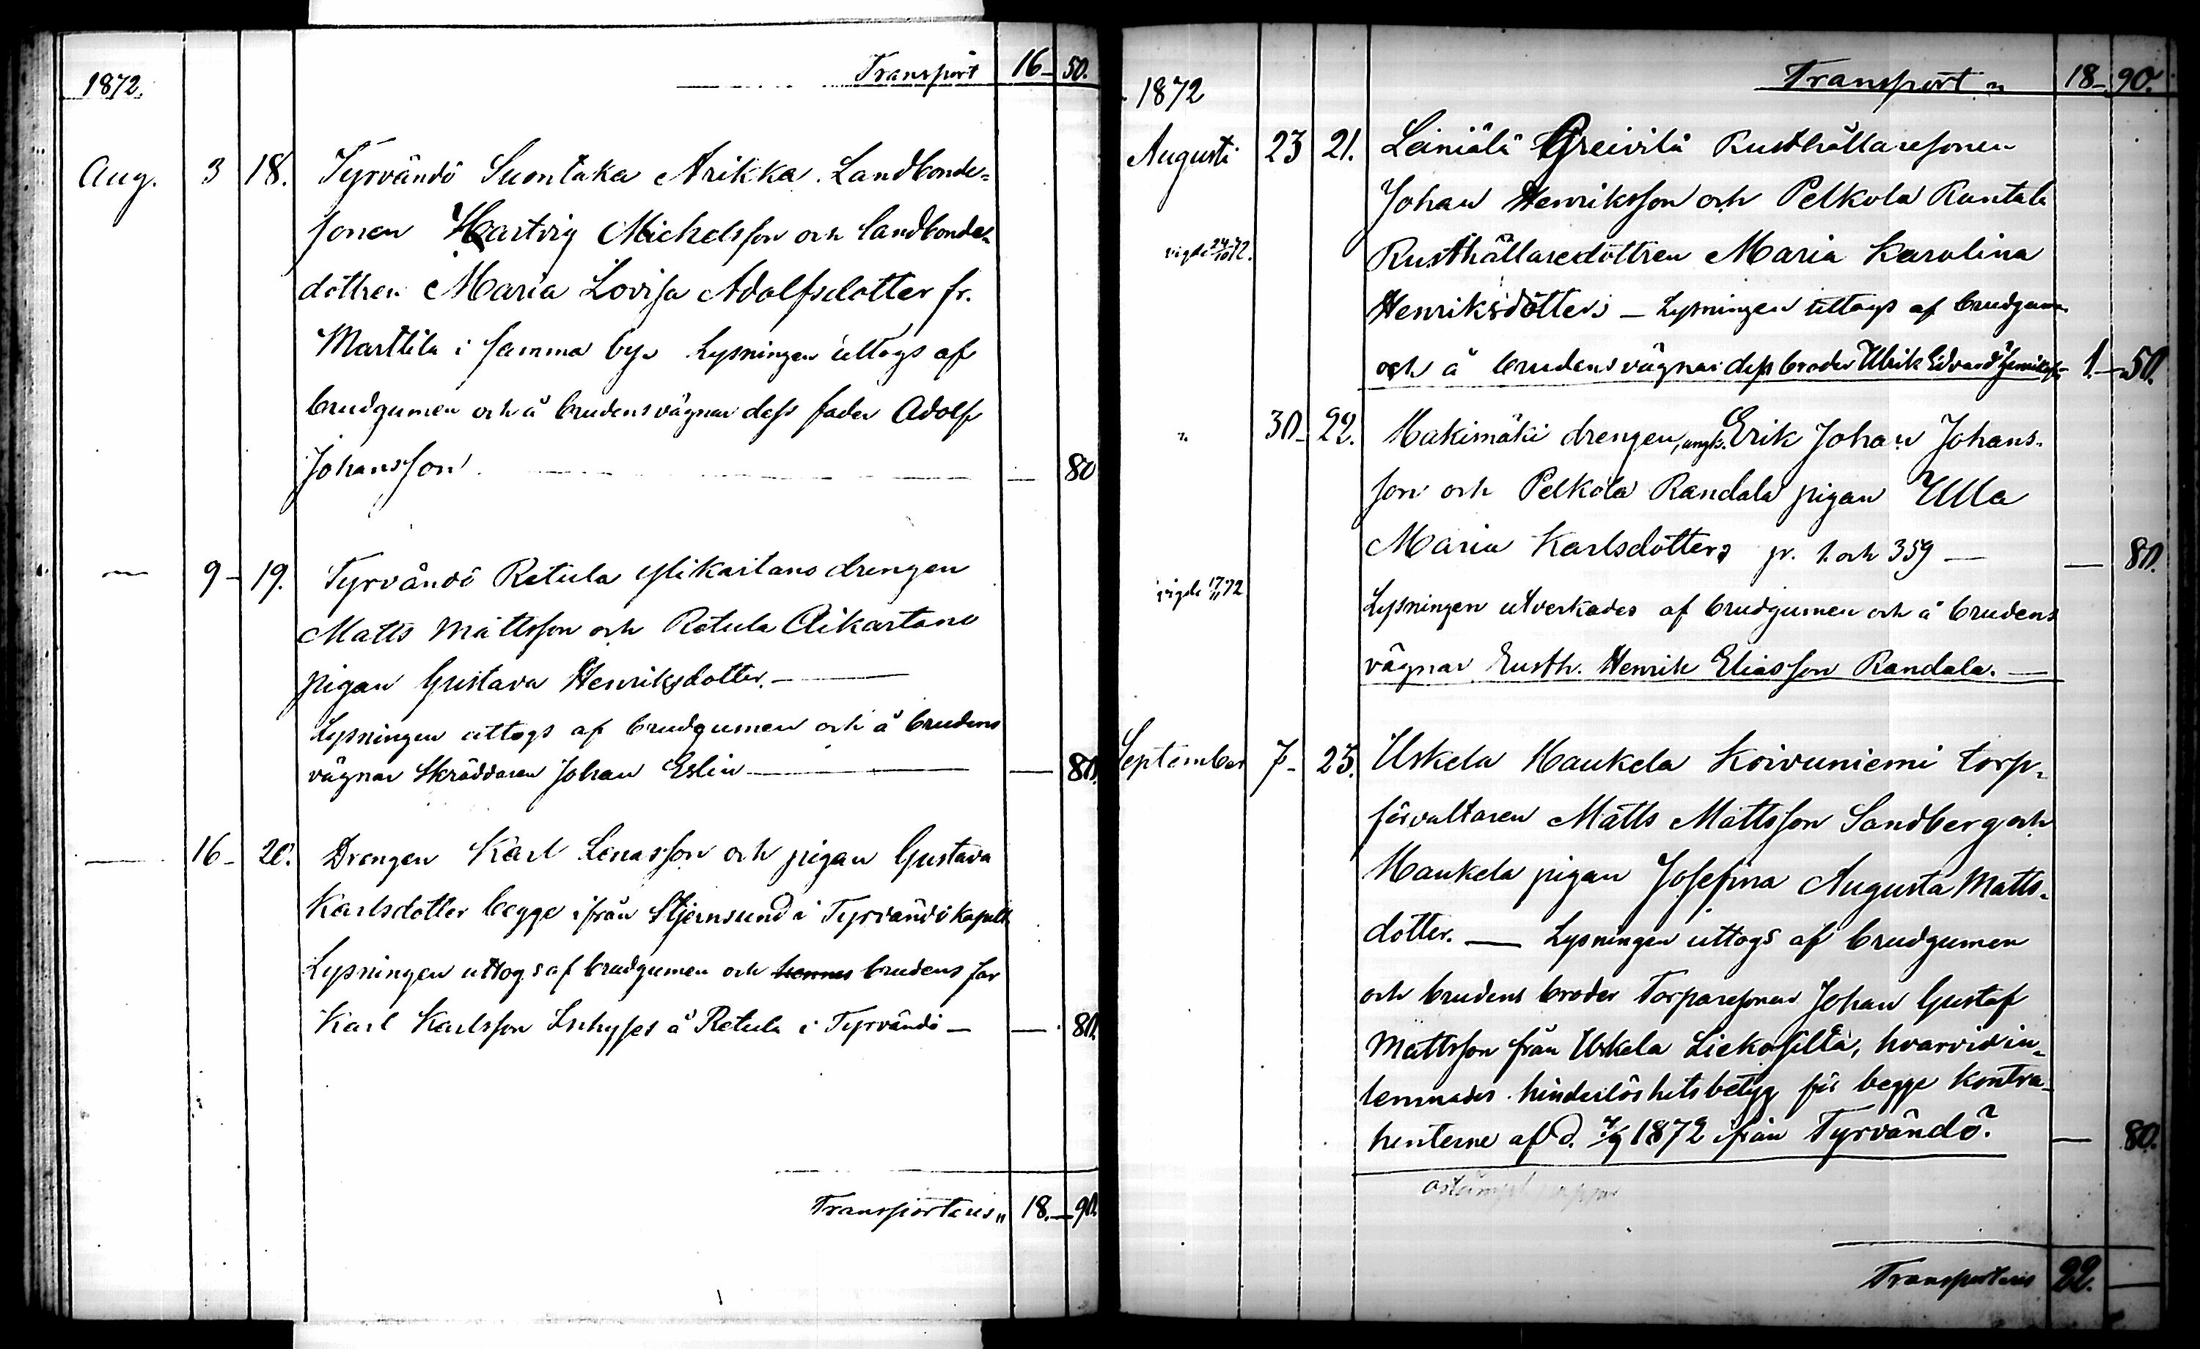 1872. Transport 16 - 50.
Aug. 3 18. Tyrvändö Suontaka Arikka Landbonde-
sonen Hartvig Michelsson och landbonde-
dottren Maria Lovisa Adolfsdotter fr.
Marttila i samma by. Lysningen uttogs af
brudgumen och å brudens vägnar dess fader Adolf
Johansson — 80
— 9 - 19. Tyrvändö Retula Ylikartano drengen
Matts Mattsson och Retula Alikartano
pigan Gustava Henriksdotter. —
Lysningen uttogs af brudgumen och å brudens
vägnar Skräddaren Johan Eslin — — 80.
— 16 - 20. Drengen Karl Lenasson och pigan Gustava
Karlsdotter begge ifrån Stjernsund i Tyrvändö kapell
Lysningen uttogs af brudgumen och hennes brudens far
Karl Karlsson Inhyses å Retula i Tyrvändö — — 80.
Transporteras 18. - 90.
1872 Transport 18 - 90.
Augusti 23 21. Leiniälä Greivilä Rusthållaresonen
Johan Henriksson och Pelkola Rantala
vigde 24/10 72. Rusthållaredottren Maria Karolina
Henriksdotter; — Lysningen uttogs af brudgum
och å brudens vägnar dess broder Ulrik Edvard Henriksson 1. - 50.
" 30 - 22. Hakimäki drengen, Erik Johan Johans-
son och Pelkola Randala pigan Ulla
Maria Karlsdotter; pr. 1. och 359 — — 80.
vigde 17/11 72 Lysningen utverkades af brudgumen och å brudens
vägnar Rusth. Henrik Eliasson Randala. —
September 7 - 23. Uskela Haukela Koivuniemi torp-
förvaltaren Matts Mattsson Sandberg och
Haukela pigan Josefina Augusta Matts-
dotter. — Lysningen uttogs af brudgumen
och brudens broder Torparesonen Johan Gustaf
Mattsson från Uskela Liekosilta, hvarvid in-
lemnades hinderlöshetsbetyg för begge kontra-
henterne af d. 7/9 1872 ifrån Tyrvändö. — 80.
Transporteras 22. —